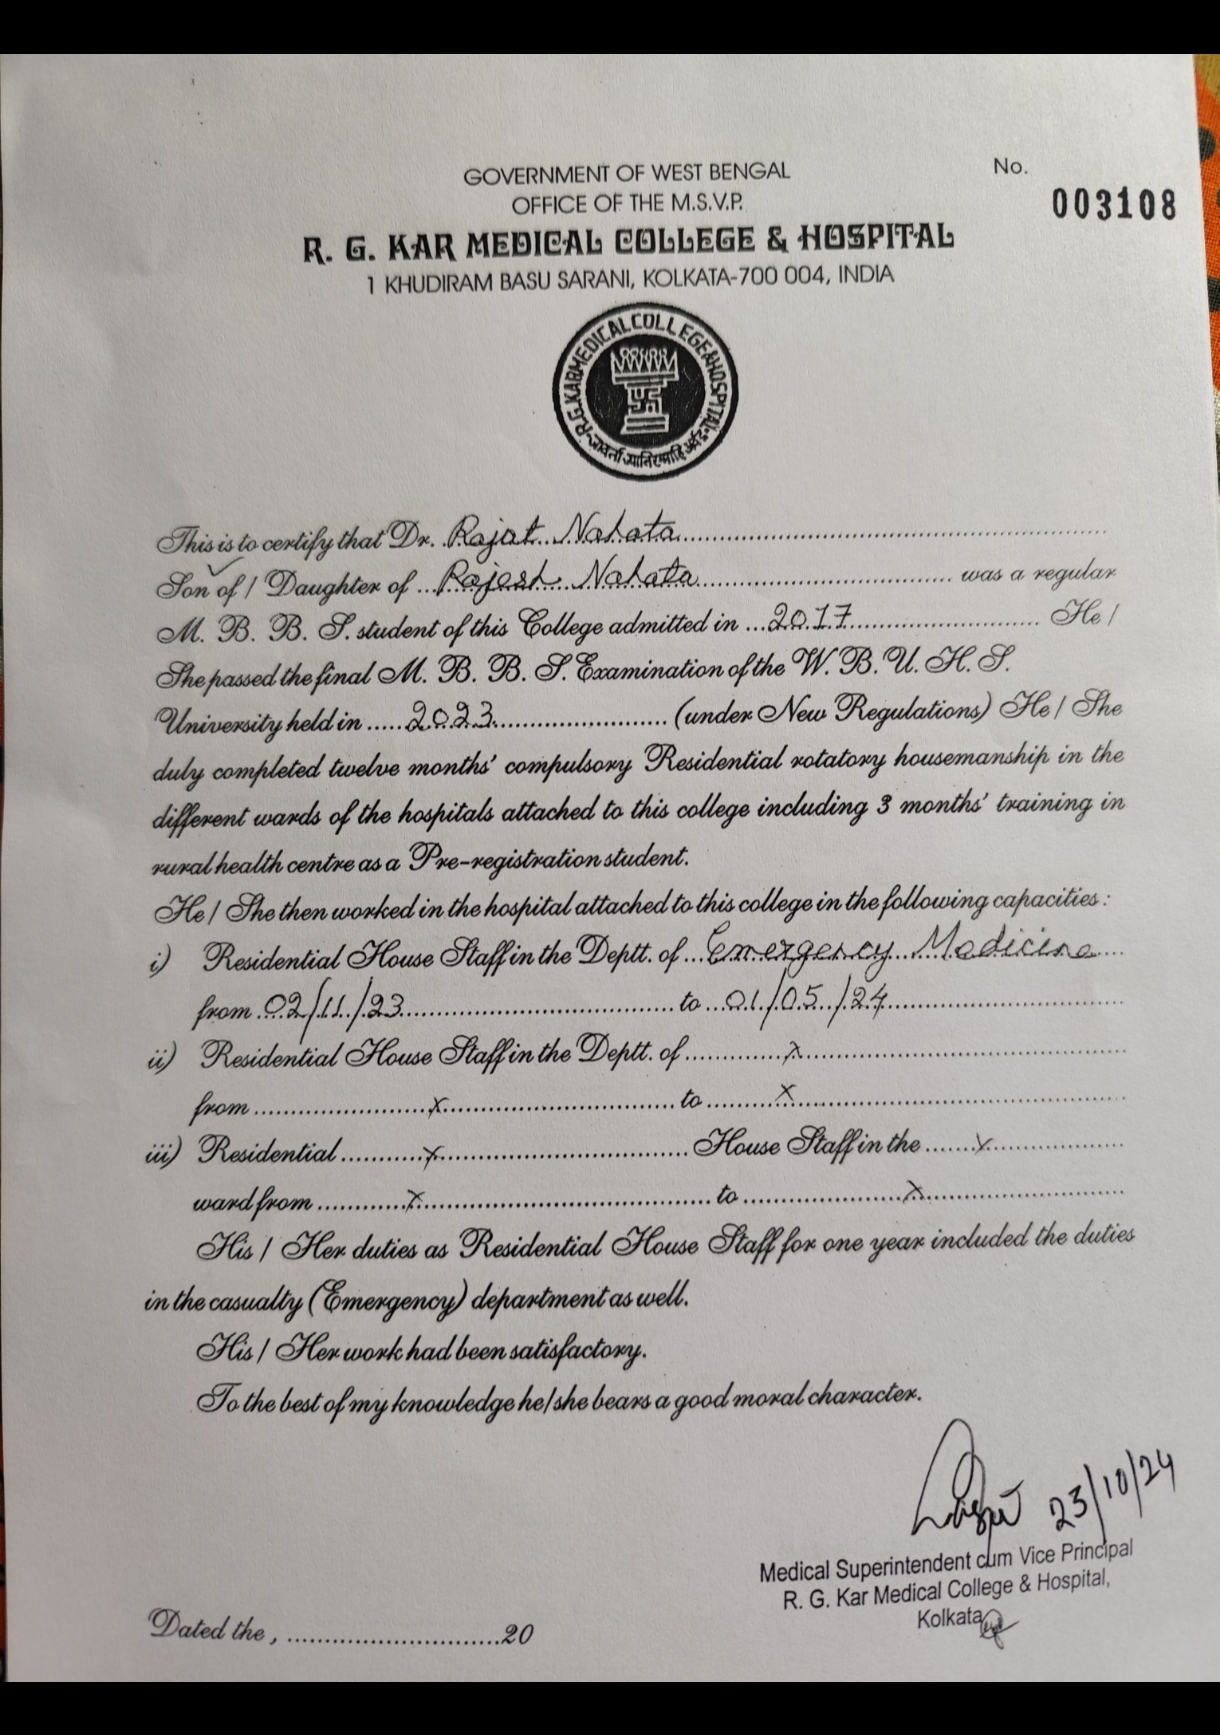 GOVERNMENT OF WEST BENGAL
No.
OFFICE OF THE M.S.V.P.
003108
R. G. KAR MEDICAL COLLEGE & HOSPITAL
1 KHUDIRAM BASU SARANI, KOLKATA-700 004, INDIA
R.G.KAR MEDICAL COLLEGE & HOSPITAL
This is to certify that Dr. Rajat Nahata
Son of / Daughter of Rajesh Nahata was a regular
M. B. B. S. student of this College admitted in 2017 He /
She passed the final M. B. B. S. Examination of the W. B. U. H. S.
University held in 2023 (under New Regulations) He / She
duly completed twelve months' compulsory Residential rotatory housemanship in the
different wards of the hospitals attached to this college including 3 months' training in
rural health centre as a Pre-registration student.
He / She then worked in the hospital attached to this college in the following capacities :
i) Residential House Staff in the Deptt. of Emergency Medicine
from 02/11/23 to 01/05/24
ii) Residential House Staff in the Deptt. of x
from x to x
iii) Residential x House Staff in the x
ward from x to x
His / Her duties as Residential House Staff for one year included the duties
in the casualty (Emergency) department as well.
His / Her work had been satisfactory.
To the best of my knowledge he/she bears a good moral character.
23/10/24
Medical Superintendent cum Vice Principal
R. G. Kar Medical College & Hospital,
Kolkata
Dated the , 20